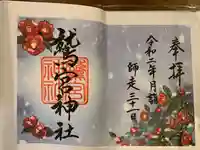 奉拝
令和二年月詣
師走三十一日
鷲宮神社